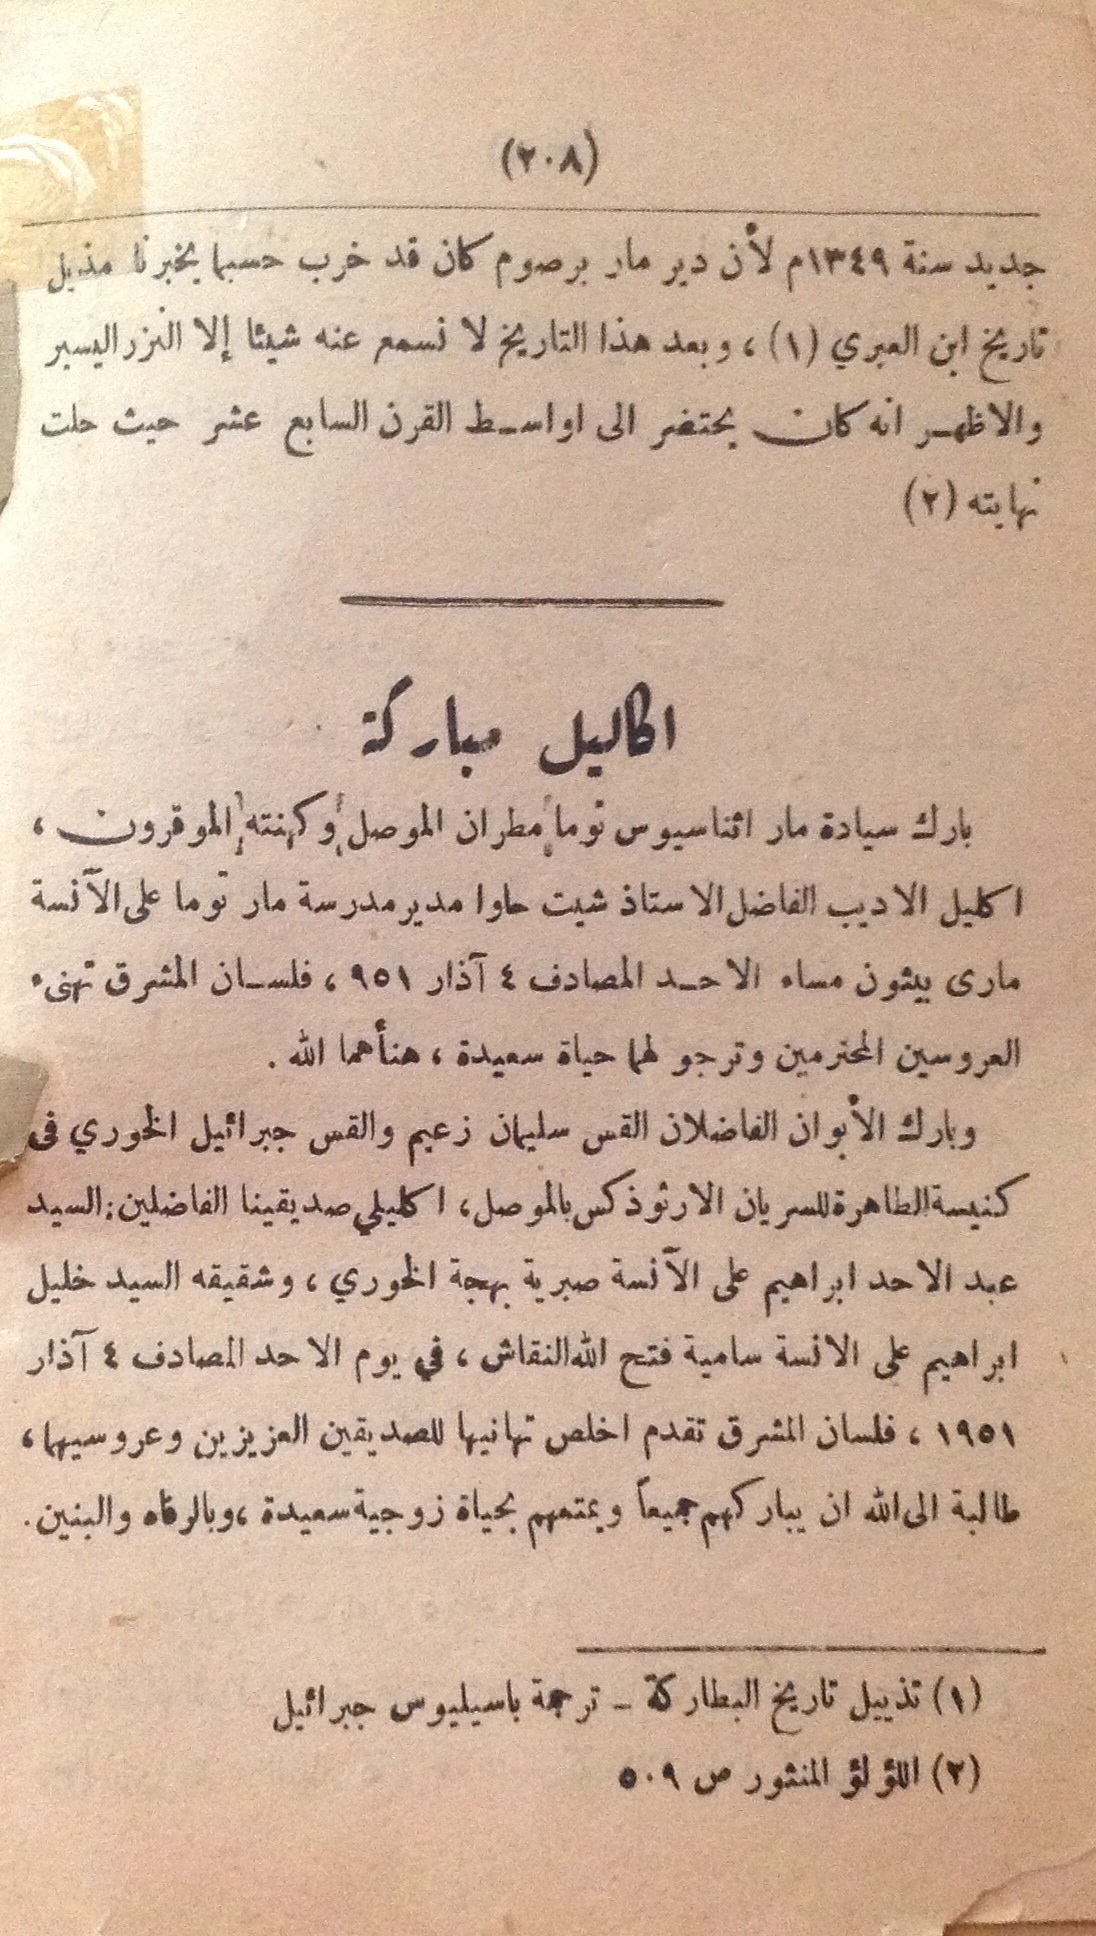 (٢٠٨)
جديد سنة ١٣٤٩م لأن دير مار برصوم كان قد خرب حسبما يخبرنا مذيل
تاريخ ابن العبري (١) ، وبعد هذا التاريخ لا نسمع عنه شيئا إلا النزر اليسير
والاظهر انه كان يحتضر الى اواسط القرن السابع عشر حيث حلت
نهايته (٢)
اكاليل مباركة
بارك سيادة مار اثناسيوس توما مطران الموصل وكهنته الموقرون ،
اكليل الاديب الفاضل الاستاذ شيت حاوا مدير مدرسة مار توما على الآنسة
مارى بيثون مساء الاحد المصادف ٤ آذار ٩٥١ ، فلسان المشرق تهنىء
العروسين المحترمين وترجو لهما حياة سعيدة ، هنأهما الله .
وبارك الأبوان الفاضلان القس سليمان زعيم والقس جبرائيل الخوري فى
كنيسة الطاهرة للسريان الارثوذكس بالموصل، اكليلي صديقينا الفاضلين: السيد
عبد الاحد ابراهيم على الآنسة صبرية بهجة الخوري ، وشقيقه السيد خليل
ابراهيم على الانسة سامية فتح الله النقاش ، في يوم الاحد المصادف ٤ آذار
١٩٥١ ، فلسان المشرق تقدم اخلص تهانيها للصديقين العزيزين وعروسيهما ،
طالبة الى الله ان يباركهم جميعاً ويمتعهم بحياة زوجية سعيدة ، وبالرفاه والبنين .
(١) تذييل تاريخ البطاركة ـ ترجمة باسيليوس جبرائيل
(٢) اللؤلؤ المنثور ص ٥٠٩